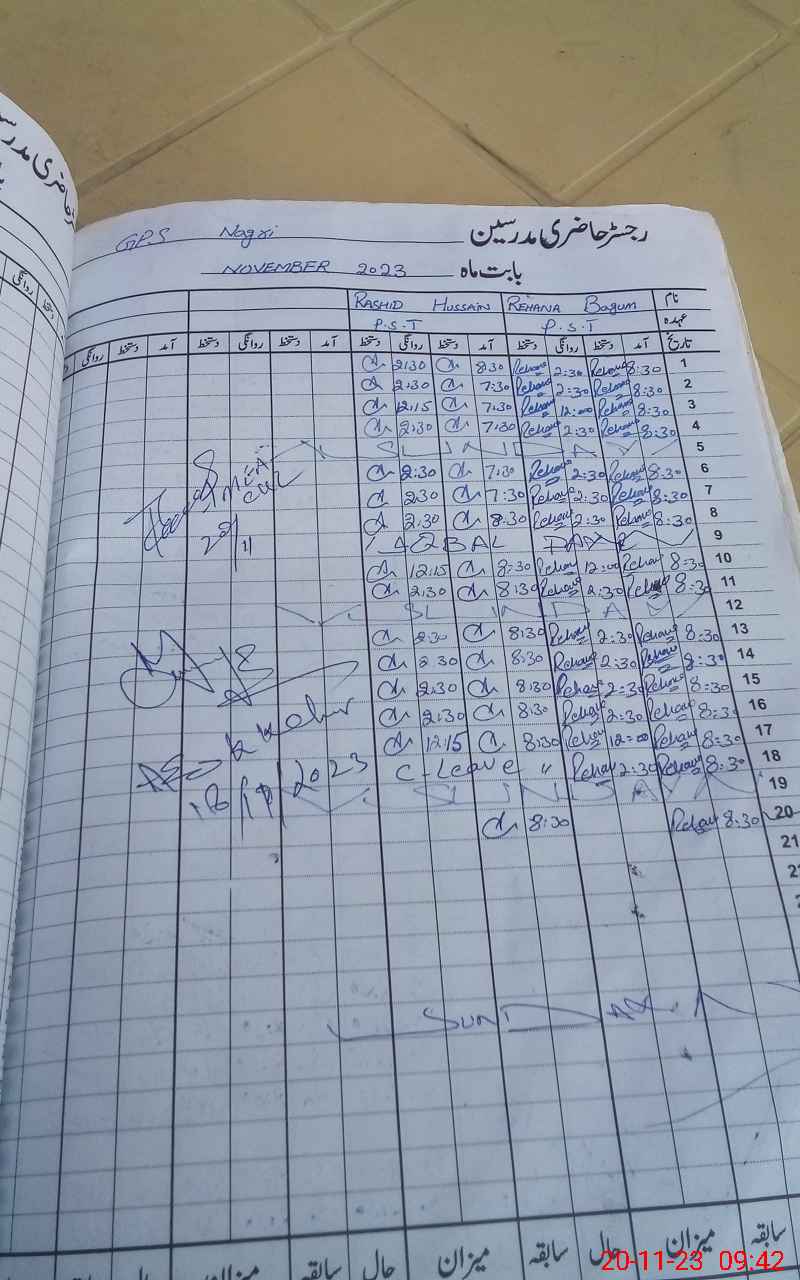 رجسٹر حاضری مدرسین GPS Nagri
بابت ماہ NOVEMBER 2023
نام REHANA Bagum RASHID HUSSAIN
عہدہ P.S.T P.S.T
تاریخ آمد دستخط روانگی دستخط آمد دستخط روانگی دستخط آمد دستخط روانگی دستخط آمد دستخط روانگی
1 8:30 Rehana 2:30 Rehana 8:30 2:30
2 8:30 Rehana 2:30 Rehana 7:30 2:30
3 8:30 Rehana 12:00 Rehana 7:30 12:15
4 8:30 Rehana 2:30 Rehana 7:30 2:30
5 SUNDAY
6 8:30 Rehana 2:30 Rehana 7:30 2:30
7 8:30 Rehana 2:30 Rehana 7:30 2:30
8 8:30 Rehana 2:30 Rehana 8:30 2:30
9 IQBAL DAY
10 8:30 Rehana 12:00 Rehana 8:30 12:15
11 8:30 Rehana 2:30 Rehana 8:30 2:30
12 SUNDAY
13 8:30 Rehana 2:30 Rehana 8:30 2:30
14 8:30 Rehana 2:30 Rehana 8:30 2:30
15 8:30 Rehana 2:30 Rehana 8:30 2:30
16 8:30 Rehana 2:30 Rehana 8:30 2:30
17 8:30 Rehana 12:00 Rehana 8:30 12:15
18 8:30 Rehana 2:30 Rehana C-Leave "
19 SUNDAY
20 8:30 Rehana 8:30
21
SUNDAY
سابقہ میزان حال سابقہ میزان حال سابقہ میزان
20-11-23 09:42